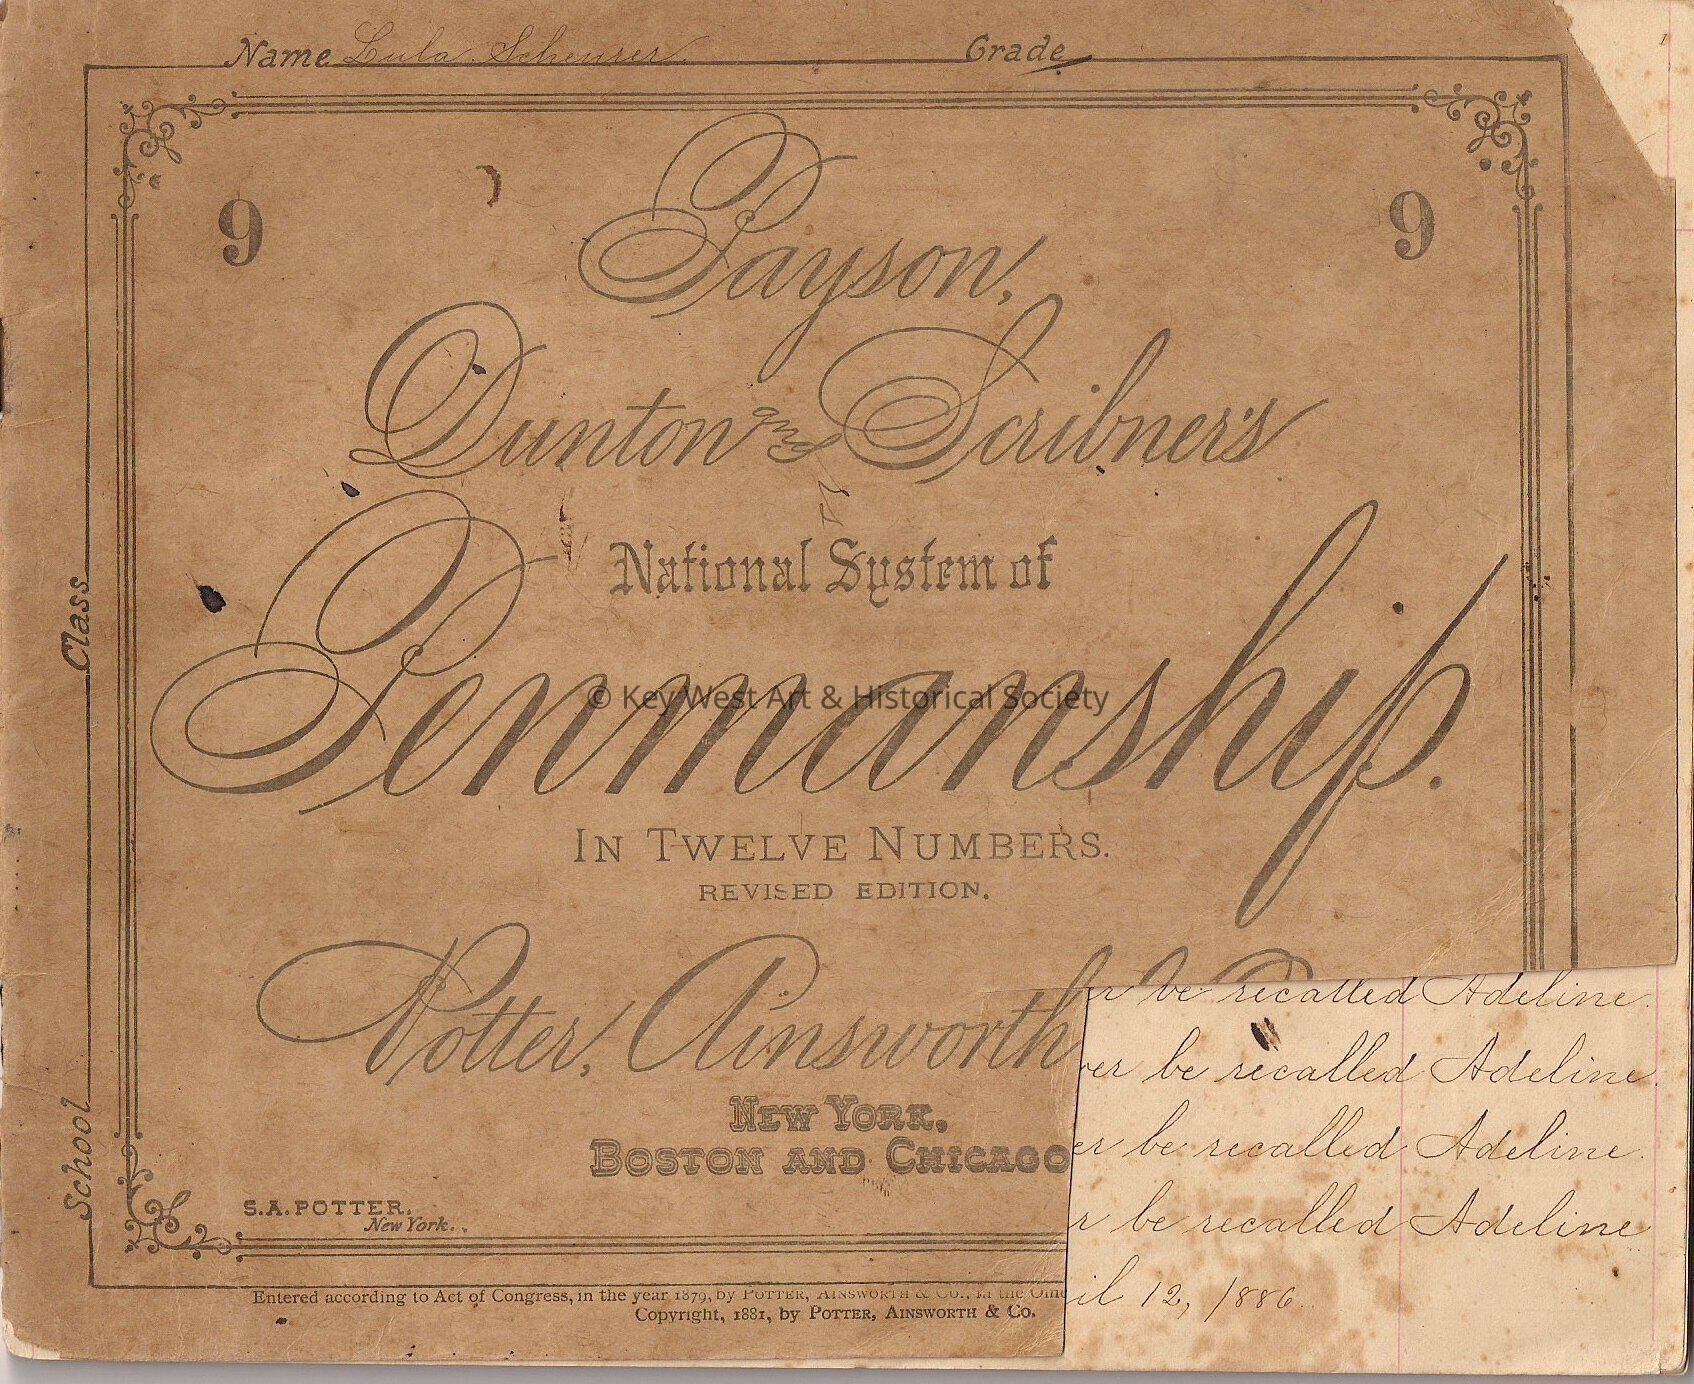 Name Lula Scheurer Grade
9 9
Payson,
Dunton and Scribner's
National System of
Penmanship.
© Key West Art & Historical Society
IN TWELVE NUMBERS.
REVISED EDITION.
Potter, Ainsworth
NEW YORK,
BOSTON AND CHICAGO
S.A. POTTER,
New York.
Entered according to Act of Congress, in the year 1879, by POTTER, AINSWORTH & Co., in the
Copyright, 1881, by POTTER, AINSWORTH & Co.
Class
School
be recalled Adeline.
ver be recalled Adeline.
er be recalled Adeline.
r be recalled Adeline
il 12, 1886